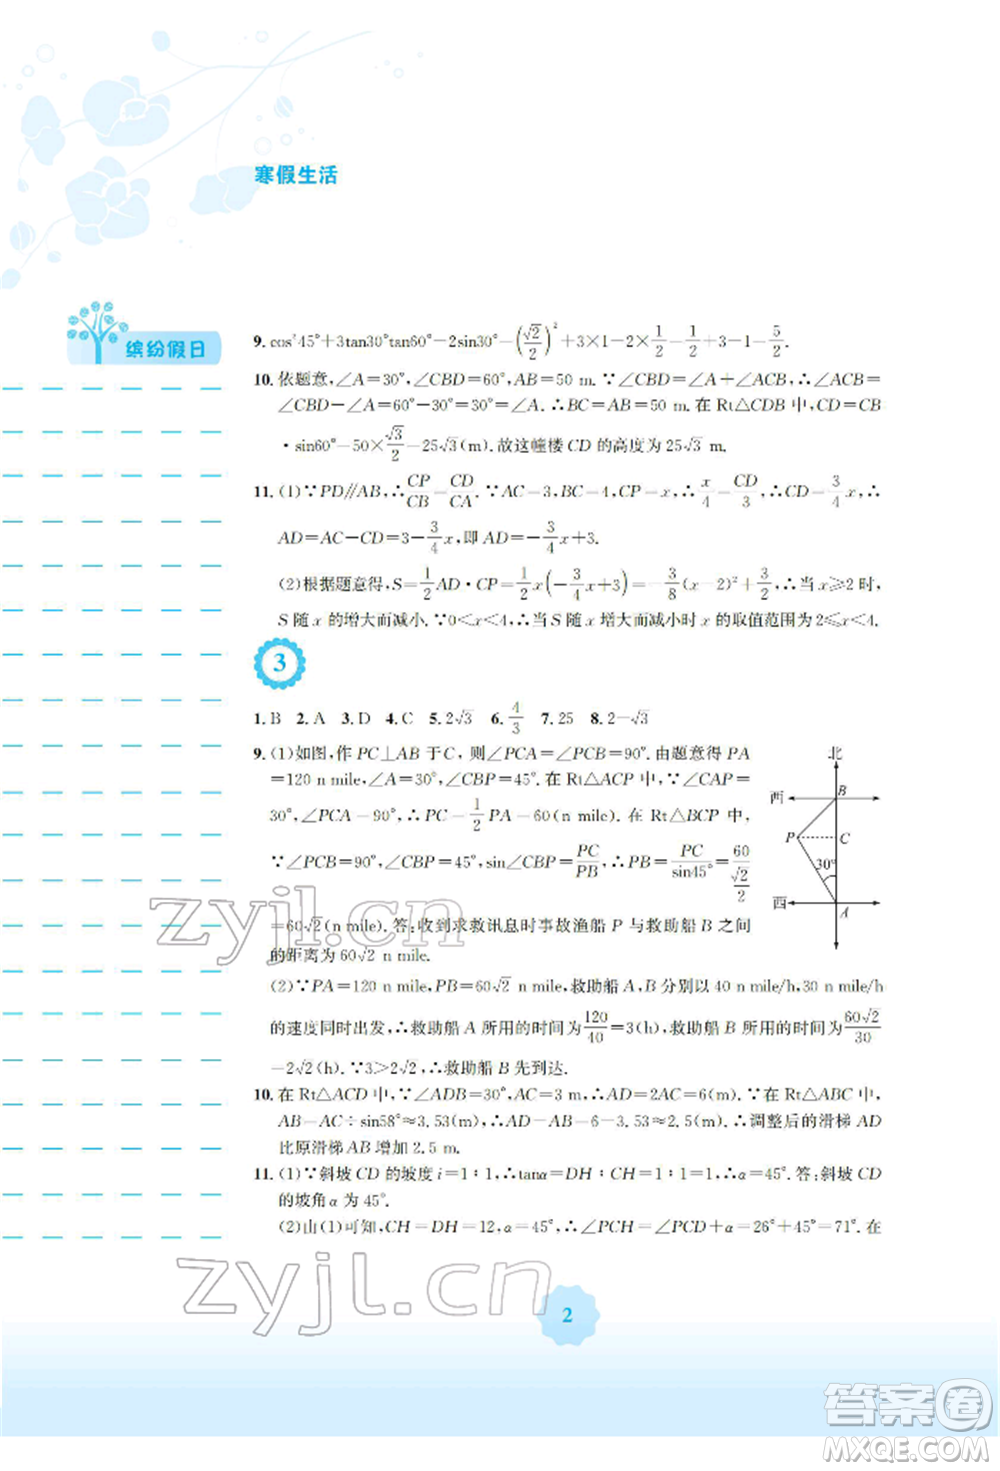 寒假生活
缤纷假日
9. cos²45°+3tan30°tan60°−2sin30°=(√2/2)²+3×1−2×1/2=1/2+3−1=5/2.
10. 依题意,∠A=30°,∠CBD=60°,AB=50 m.∵∠CBD=∠A+∠ACB,∴∠ACB=
∠CBD−∠A=60°−30°=30°=∠A.∴BC=AB=50 m.在 Rt△CDB 中,CD=CB
·sin60°=50×√3/2=25√3(m).故这幢楼 CD 的高度为 25√3 m.
11. (1)∵PD∥AB,∴CP/CB=CD/CA.∵AC=3,BC=4,CP=x,∴x/4=CD/3,∴CD=3/4x,∴
AD=AC−CD=3−3/4x,即 AD=−3/4x+3.
(2)根据题意得,S=1/2AD·CP=1/2x(−3/4x+3)=−3/8(x−2)²+3/2,∴当 x≥2 时,
S 随 x 的增大而减小.∵0<x<4,∴当 S 随 x 增大而减小时 x 的取值范围为 2≤x<4.
3
1. B 2. A 3. D 4. C 5. 2√3 6. 4/3 7. 25 8. 2−√3
9. (1)如图,作 PC⊥AB 于 C, 则∠PCA=∠PCB=90°.由题意得 PA
=120 n mile,∠A=30°,∠CBP=45°.在 Rt△ACP 中,∵∠CAP=
30°,∠PCA=90°,∴PC=1/2PA=60(n mile).在 Rt△BCP 中,
∵∠PCB=90°,∠CBP=45°,sin∠CBP=PC/PB,∴PB=PC/sin45°=60/(√2/2)
=60√2(n mile).答:收到求救讯息时事故渔船 P 与救助船 B 之间
的距离为 60√2 n mile.
北
西
B
P
C
30°
西
A
(2)∵PA=120 n mile,PB=60√2 n mile,救助船 A,B 分别以 40 n mile/h,30 n mile/h
的速度同时出发,∴救助船 A 所用的时间为120/40=3(h),救助船 B 所用的时间为60√2/30
=2√2(h).∵3>2√2,∴救助船 B 先到达.
10. 在 Rt△ACD 中,∵∠ADB=30°,AC=3 m,∴AD=2AC=6(m).∵在 Rt△ABC 中,
AB=AC÷sin58°≈3.53(m),∴AD−AB=6−3.53≈2.5(m).∴调整后的滑梯 AD
比原滑梯 AB 增加 2.5 m.
11. (1)∵斜坡 CD 的坡度 i=1∶1,∴tanα=DH∶CH=1∶1=1,∴α=45°.答:斜坡 CD
的坡角 α 为 45°.
(2)由(1)可知,CH=DH=12,α=45°,∴∠PCH=∠PCD+α=26°+45°=71°.在
zyjl.cn
zyjl.cn
2
答案卷
MXQE.COM